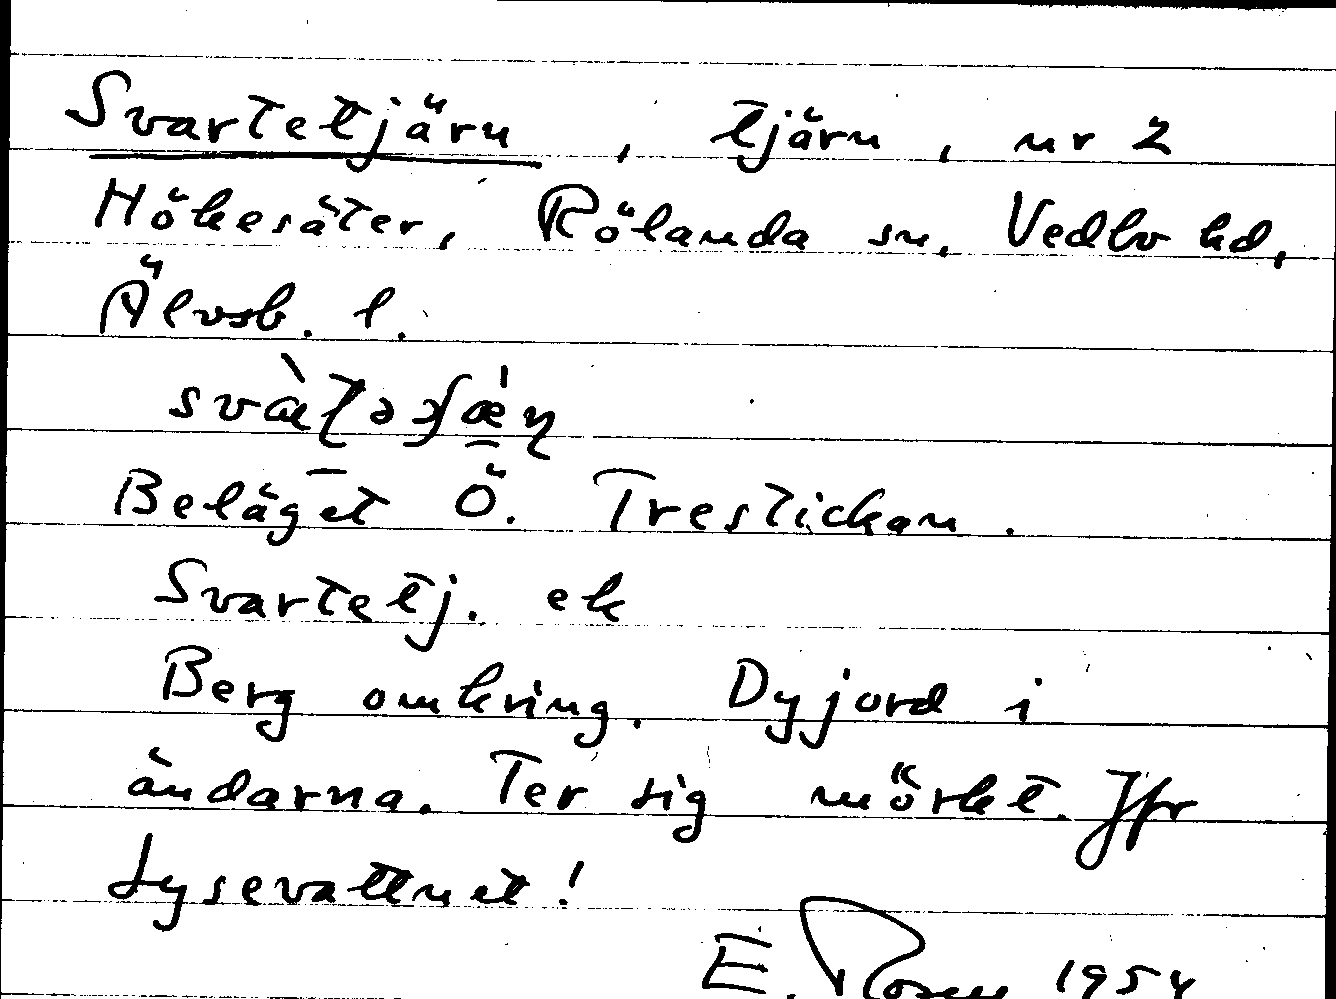 Svartetjärn, tjärn, nr 2
Hökesäter, Rölanda sn, Vedbo hd,
Älvsb. l.
Beläget Ö. Trestickan.
Svartetj. ek
Berg omkring. Dyjord i
ändarna. Ter sig mörkt. Jfr
Lysevattnet!
E. Rosen 1954